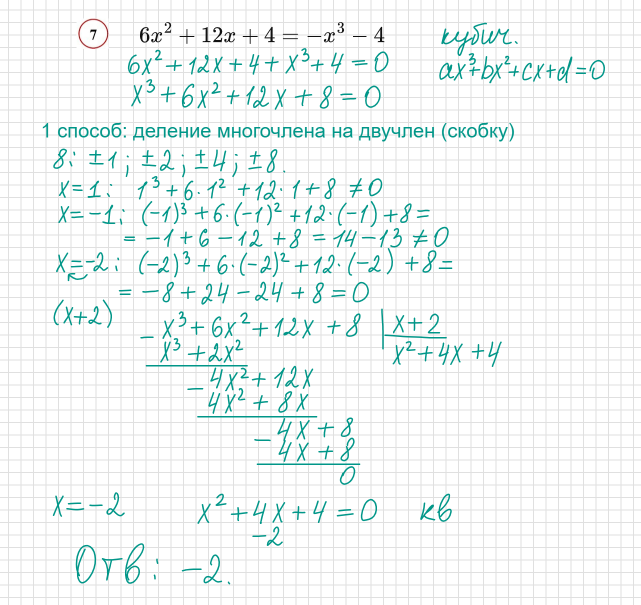 7 6x² + 12x + 4 = −x³ − 4 кубич.
6x² + 12x + 4 + x³ + 4 = 0 ax³+bx²+cx+d=0
x³ + 6x² + 12x + 8 = 0
1 способ: деление многочлена на двучлен (скобку)
8: ±1; ±2; ±4; ±8.
x=1: 1³+6·1²+12·1+8 ≠0
x=−1; (−1)³+6·(−1)²+12·(−1)+8=
= −1+6−12+8 = 14−13 ≠ 0
x=−2: (−2)³+6·(−2)²+12·(−2)+8=
= −8+24−24+8=0
(x+2) − x³+6x²+12x+8 x+2
x³+2x² x²+4x+4
− 4x²+12x
4x²+8x
− 4x+8
4x+8
0
x=−2 x²+4x+4=0 кв
−2
Отв: −2.